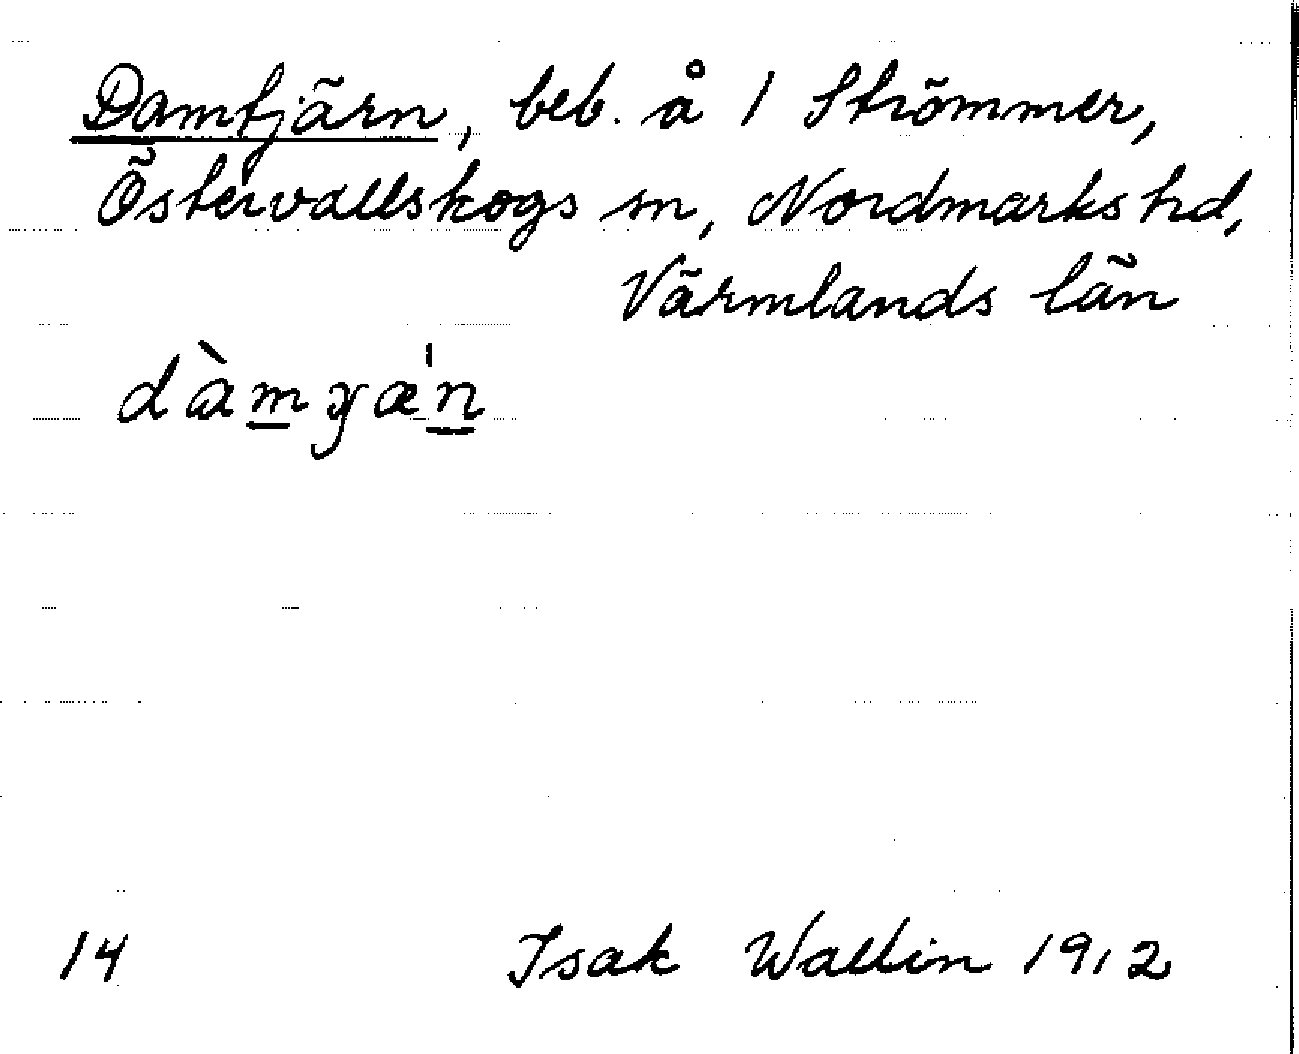 Damtjärn, beb. å 1 Strömmer,
Östervallskogs sn, Nordmarks hd,
Värmlands län
dàmɣæ'n
14 Isak Wallin 1912